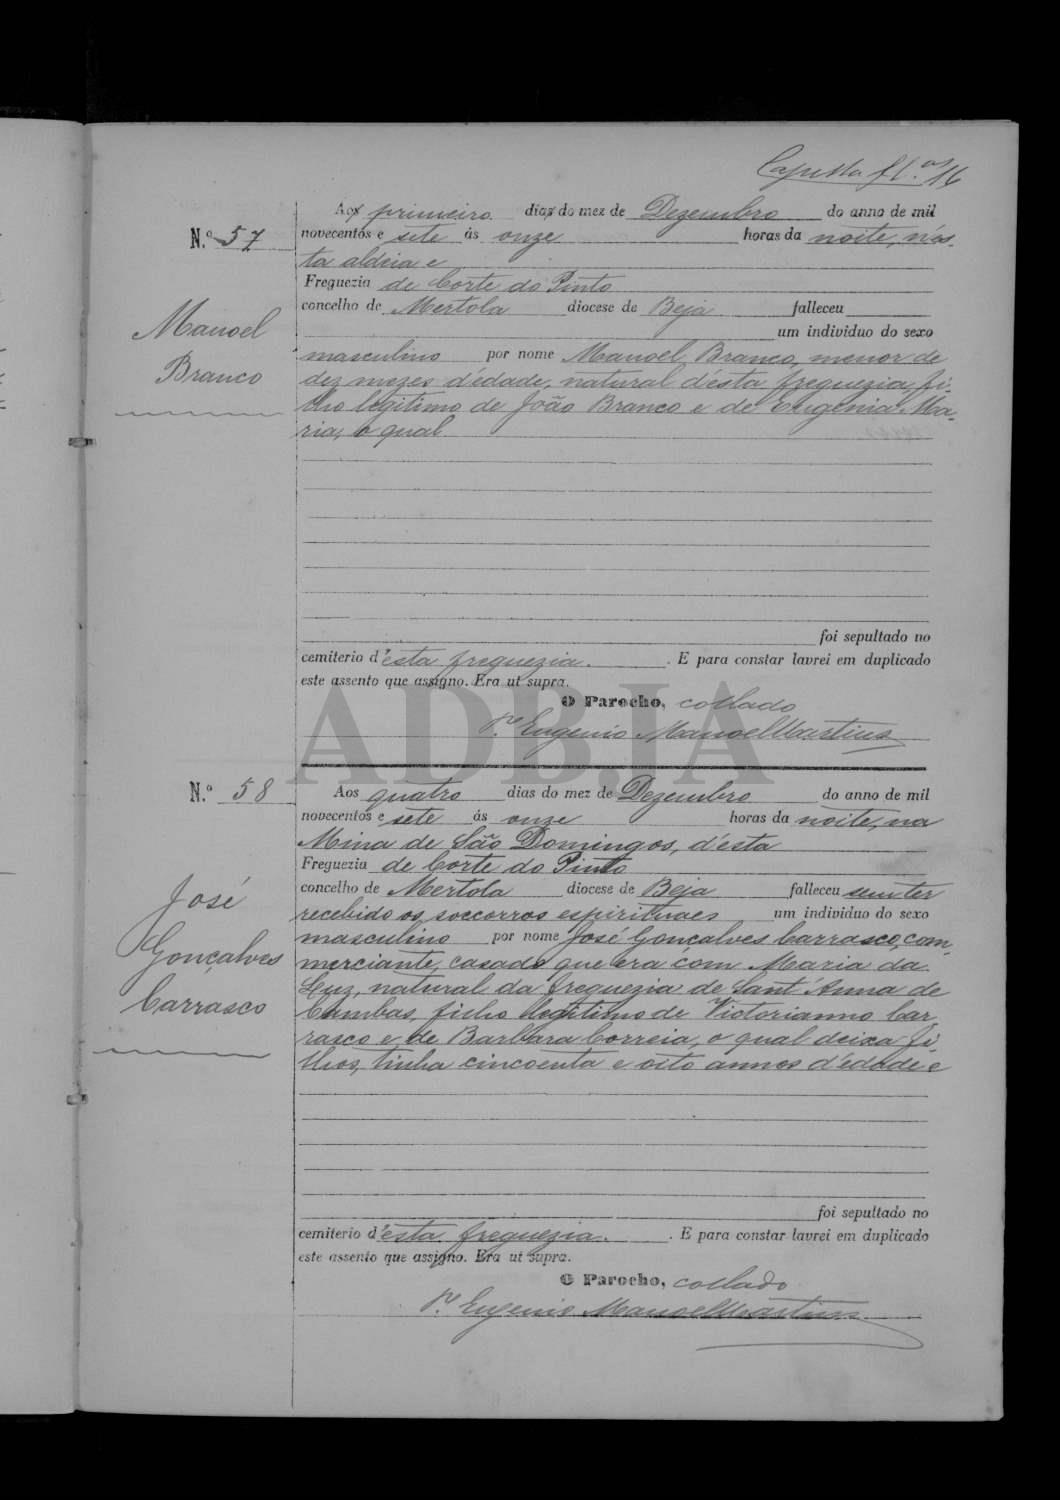 fl.as 16
N.o 57
Manoel
Branco
Aos primeiro dias do mez de Dezembro do anno de mil
novecentos e sete ás onze horas da noite, n'es-
ta aldeia e
Freguezia de Corte do Pinto
concelho de Mertola diocese de Beja falleceu
um individuo do sexo
masculino por nome Manoel Branco, menor de
dez mezes d'edade, natural d'esta freguezia, fi-
lho legitimo de João Branco e de Eugenia Ma-
ria, o qual
foi sepultado no
cemiterio d'esta freguezia. E para constar lavrei em duplicado
este assento que assigno. Era ut supra.
O Parocho, collado
P.e Eugenio Manoel Martins
ADBJA
N.o 58
José
Gonçalves
Carrasco
Aos quatro dias do mez de Dezembro do anno de mil
novecentos e sete ás onze horas da noite, na
Mina de São Domingos, d'esta
Freguezia de Corte do Pinto
concelho de Mertola diocese de Beja falleceu sem ter
recebido os soccorros espirituaes um individuo do sexo
masculino por nome José Gonçalves Carrasco, com-
merciante, casado que era com Maria da
Luz, natural da freguezia de Sant'Anna de
Cambas, filho legitimo de Victorianno Car-
rasco e de Barbara Correia, o qual deixa fi-
lhos, tinha cincoenta e oito annos d'edade e
foi sepultado no
cemiterio d'esta freguezia. E para constar lavrei em duplicado
este assento que assigno. Era ut supra.
O Parocho, collado
P.e Eugenio Manoel Martins